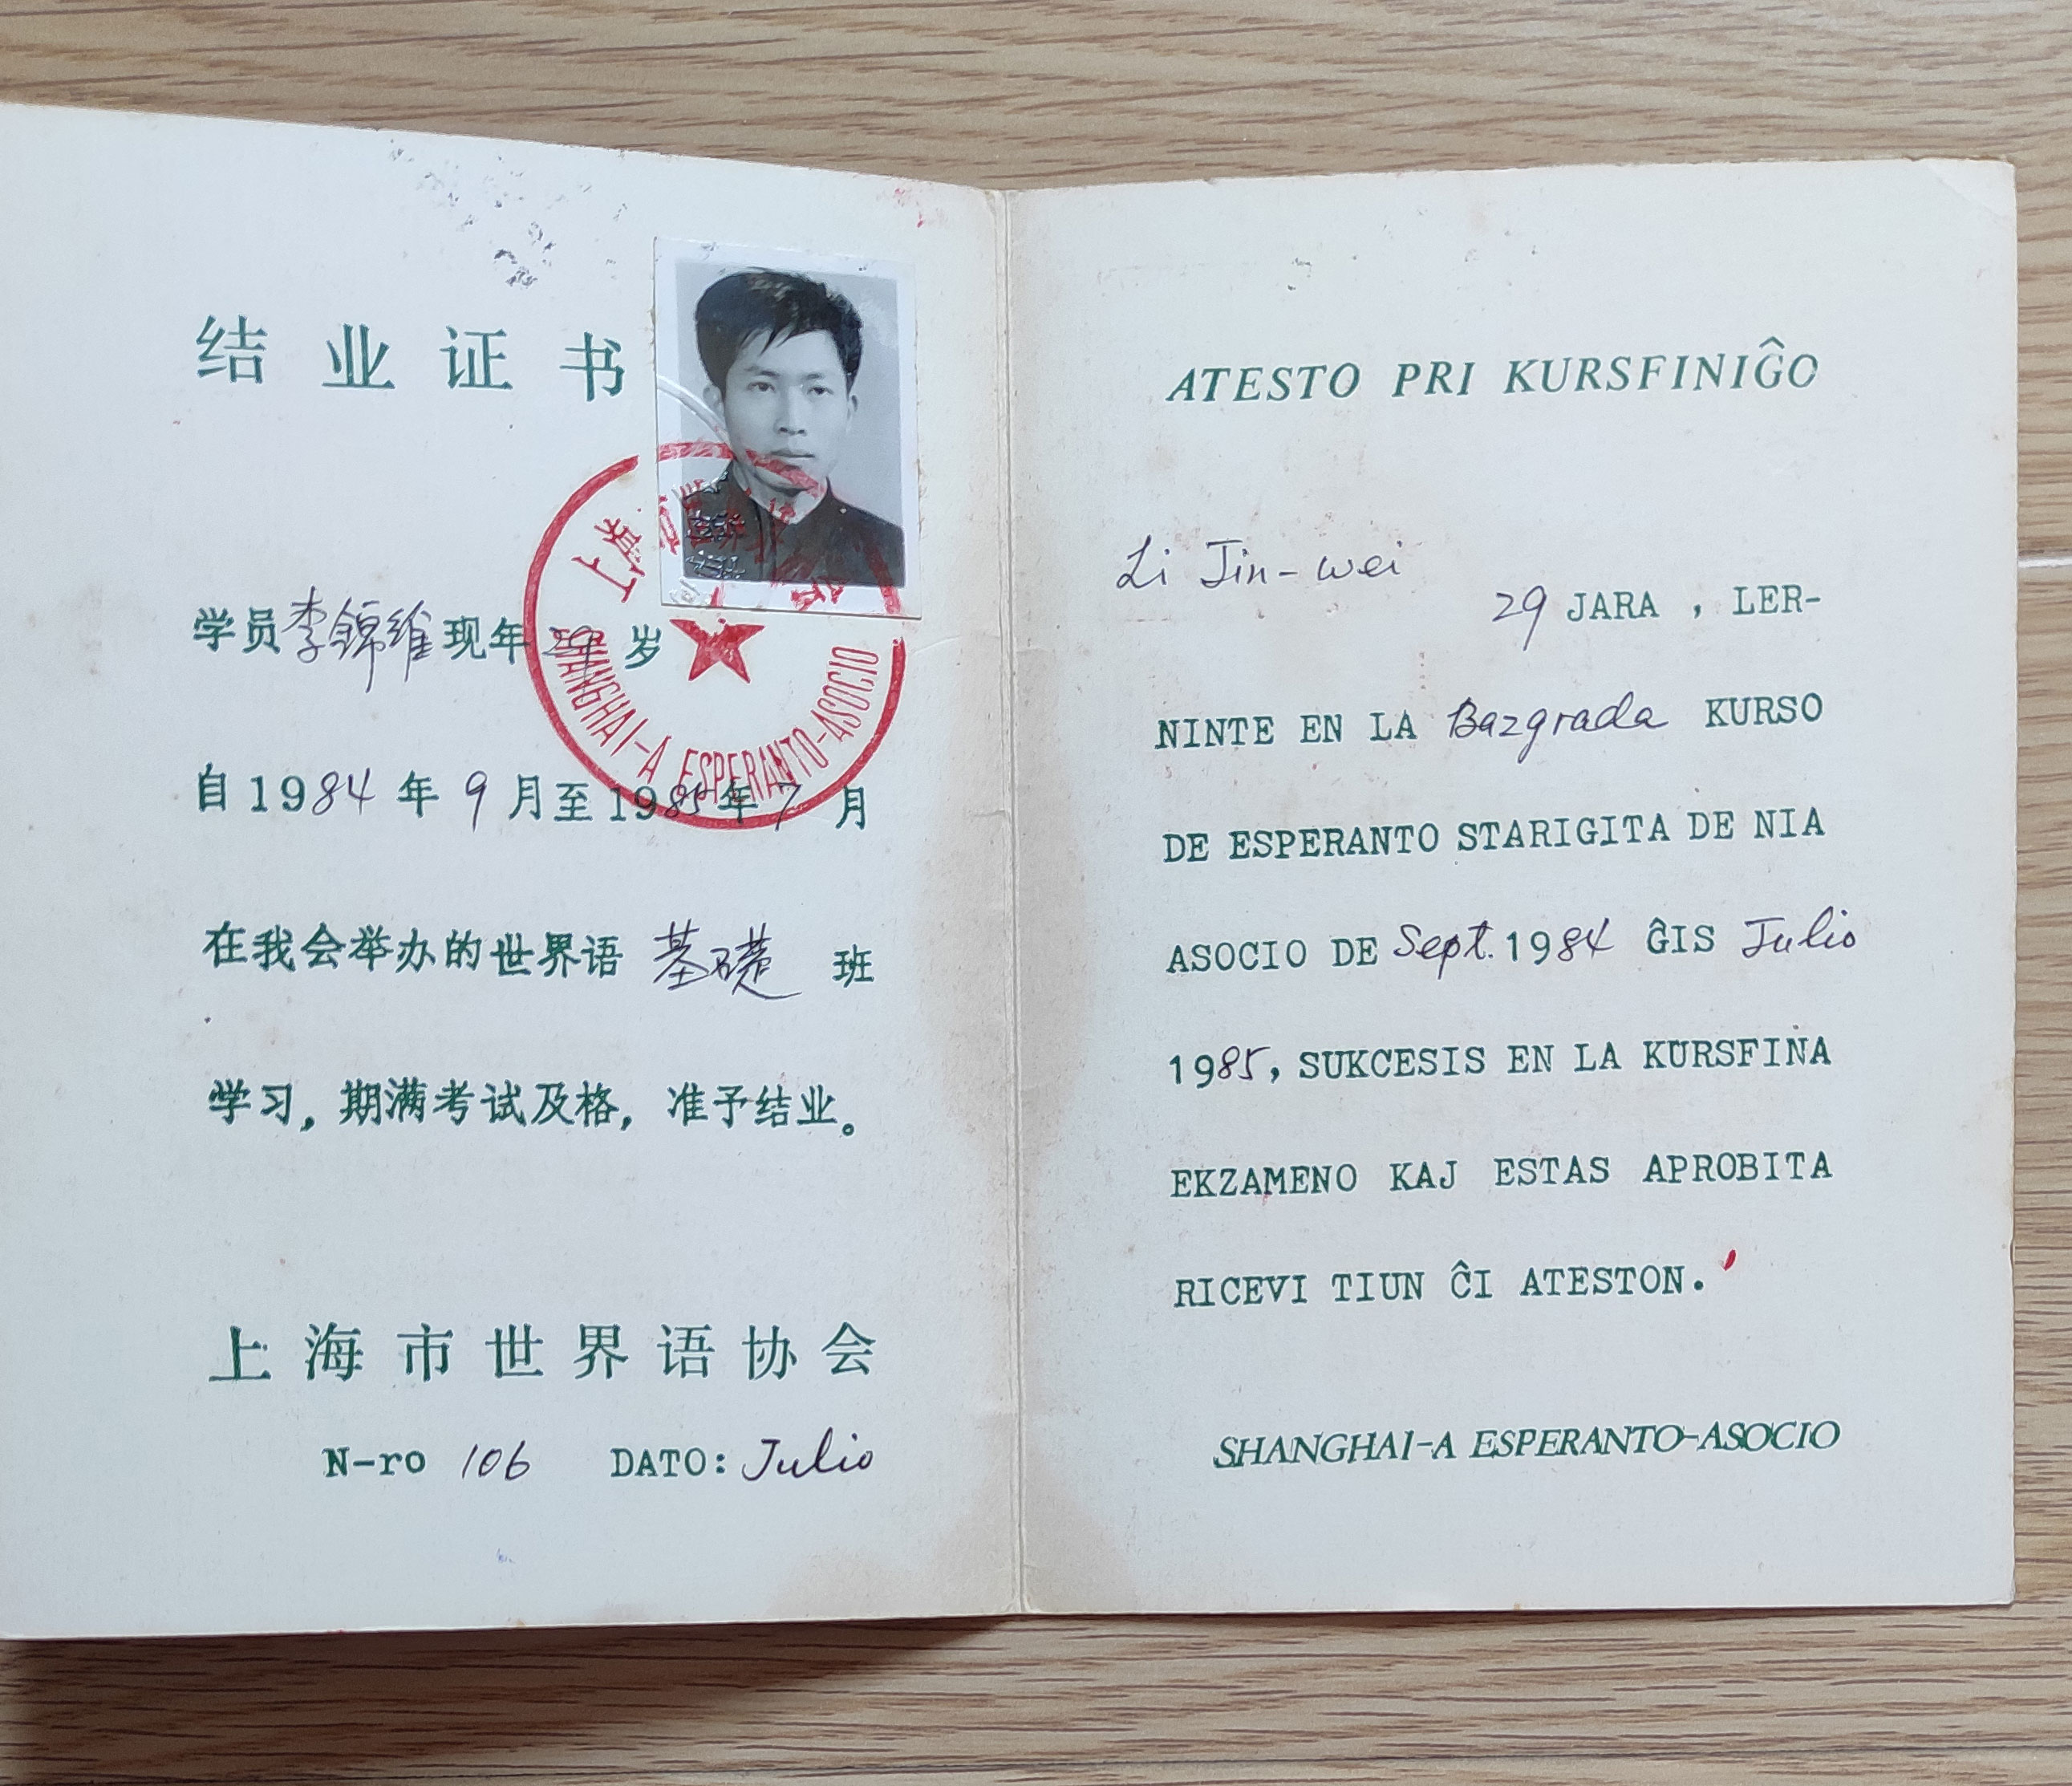 结业证书
学员李锦维现年29岁
自1984年9月至1985年7月
在我会举办的世界语基础班
学习，期满考试及格，准予结业。
上海市世界语协会
N-ro 106 DATO: Julio
上海市世界语协会
SHANGHAI-A ESPERANTO-ASOCIO
ATESTO PRI KURSFINIĜO
Li Jin-wei
29 JARA , LER-
NINTE EN LA Bazgrada KURSO
DE ESPERANTO STARIGITA DE NIA
ASOCIO DE Sept. 1984 ĜIS Julio
1985, SUKCESIS EN LA KURSFINA
EKZAMENO KAJ ESTAS APROBITA
RICEVI TIUN ĈI ATESTON.
SHANGHAI-A ESPERANTO-ASOCIO